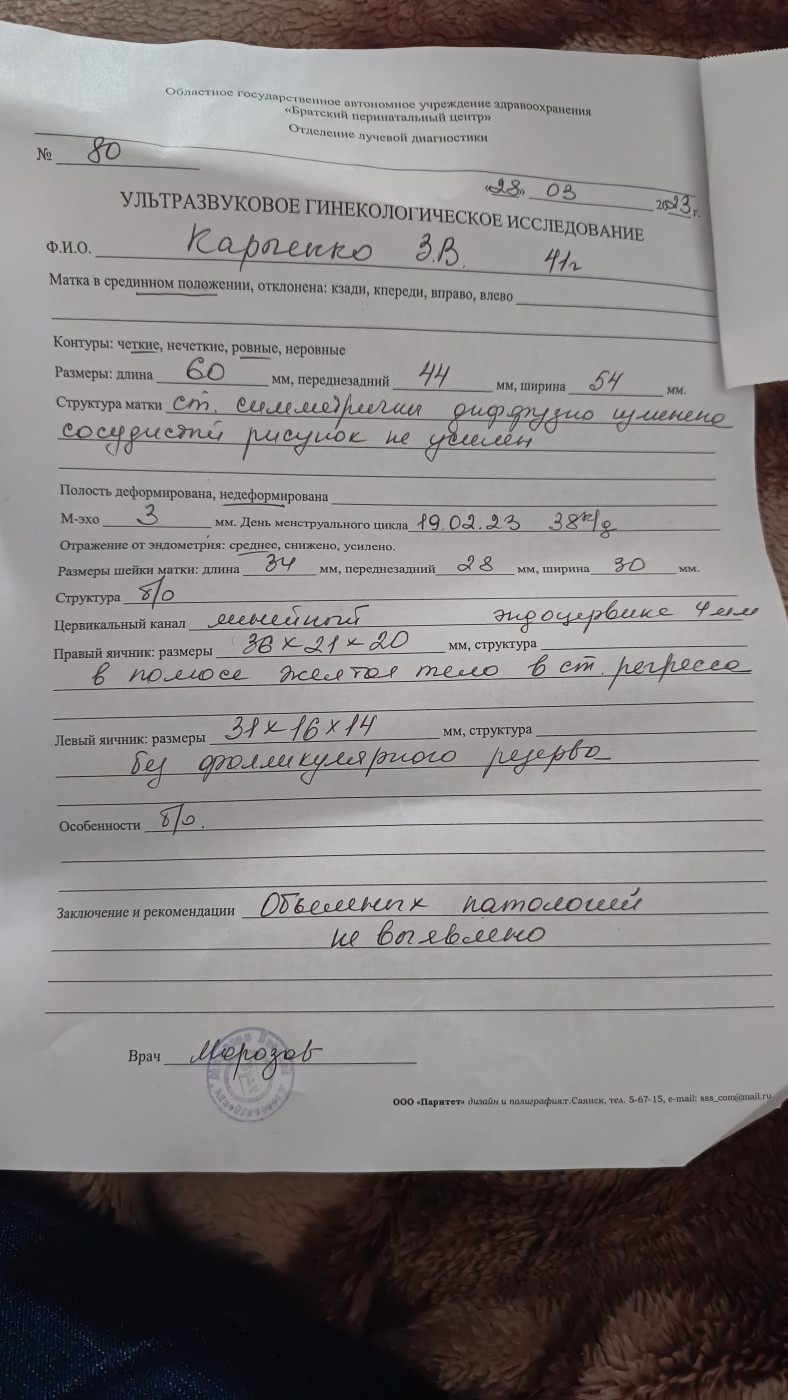 Областное государственное автономное учреждение здравоохранения
«Братский перинатальный центр»
Отделение лучевой диагностики
№ 80
«28» 03 2023 г.
УЛЬТРАЗВУКОВОЕ ГИНЕКОЛОГИЧЕСКОЕ ИССЛЕДОВАНИЕ
Ф.И.О. З.В. 41г
Матка в срединном положении, отклонена: кзади, кпереди, вправо, влево
Контуры: четкие, нечеткие, ровные, неровные
Размеры: длина 60 мм, переднезадний 44 мм, ширина 54 мм.
Структура матки ст. симметричны диффузно изменена
сосудистый рисунок не усилен
Полость деформирована, недеформирована
М-эхо 3 мм. День менструального цикла 19.02.23 38
Отражение от эндометрия: среднее, снижено, усилено.
Размеры шейки матки: длина 34 мм, переднезадний 28 мм, ширина 30 мм.
Структура б/о
Цервикальный канал линейный эндоцервикс 4 мм
Правый яичник: размеры 36 х 21 х 20 мм, структура
в полюсе желтое тело в ст. регресса
Левый яичник: размеры 31 х 16 х 14 мм, структура
без фолликулярного резерва
Особенности б/о.
Заключение и рекомендации Объемных патологий
не выявлено
Врач Морозов
ООО «Паритет» дизайн и полиграфия.г.Саянск, тел. 5-67-15, e-mail: sss_com@mail.ru